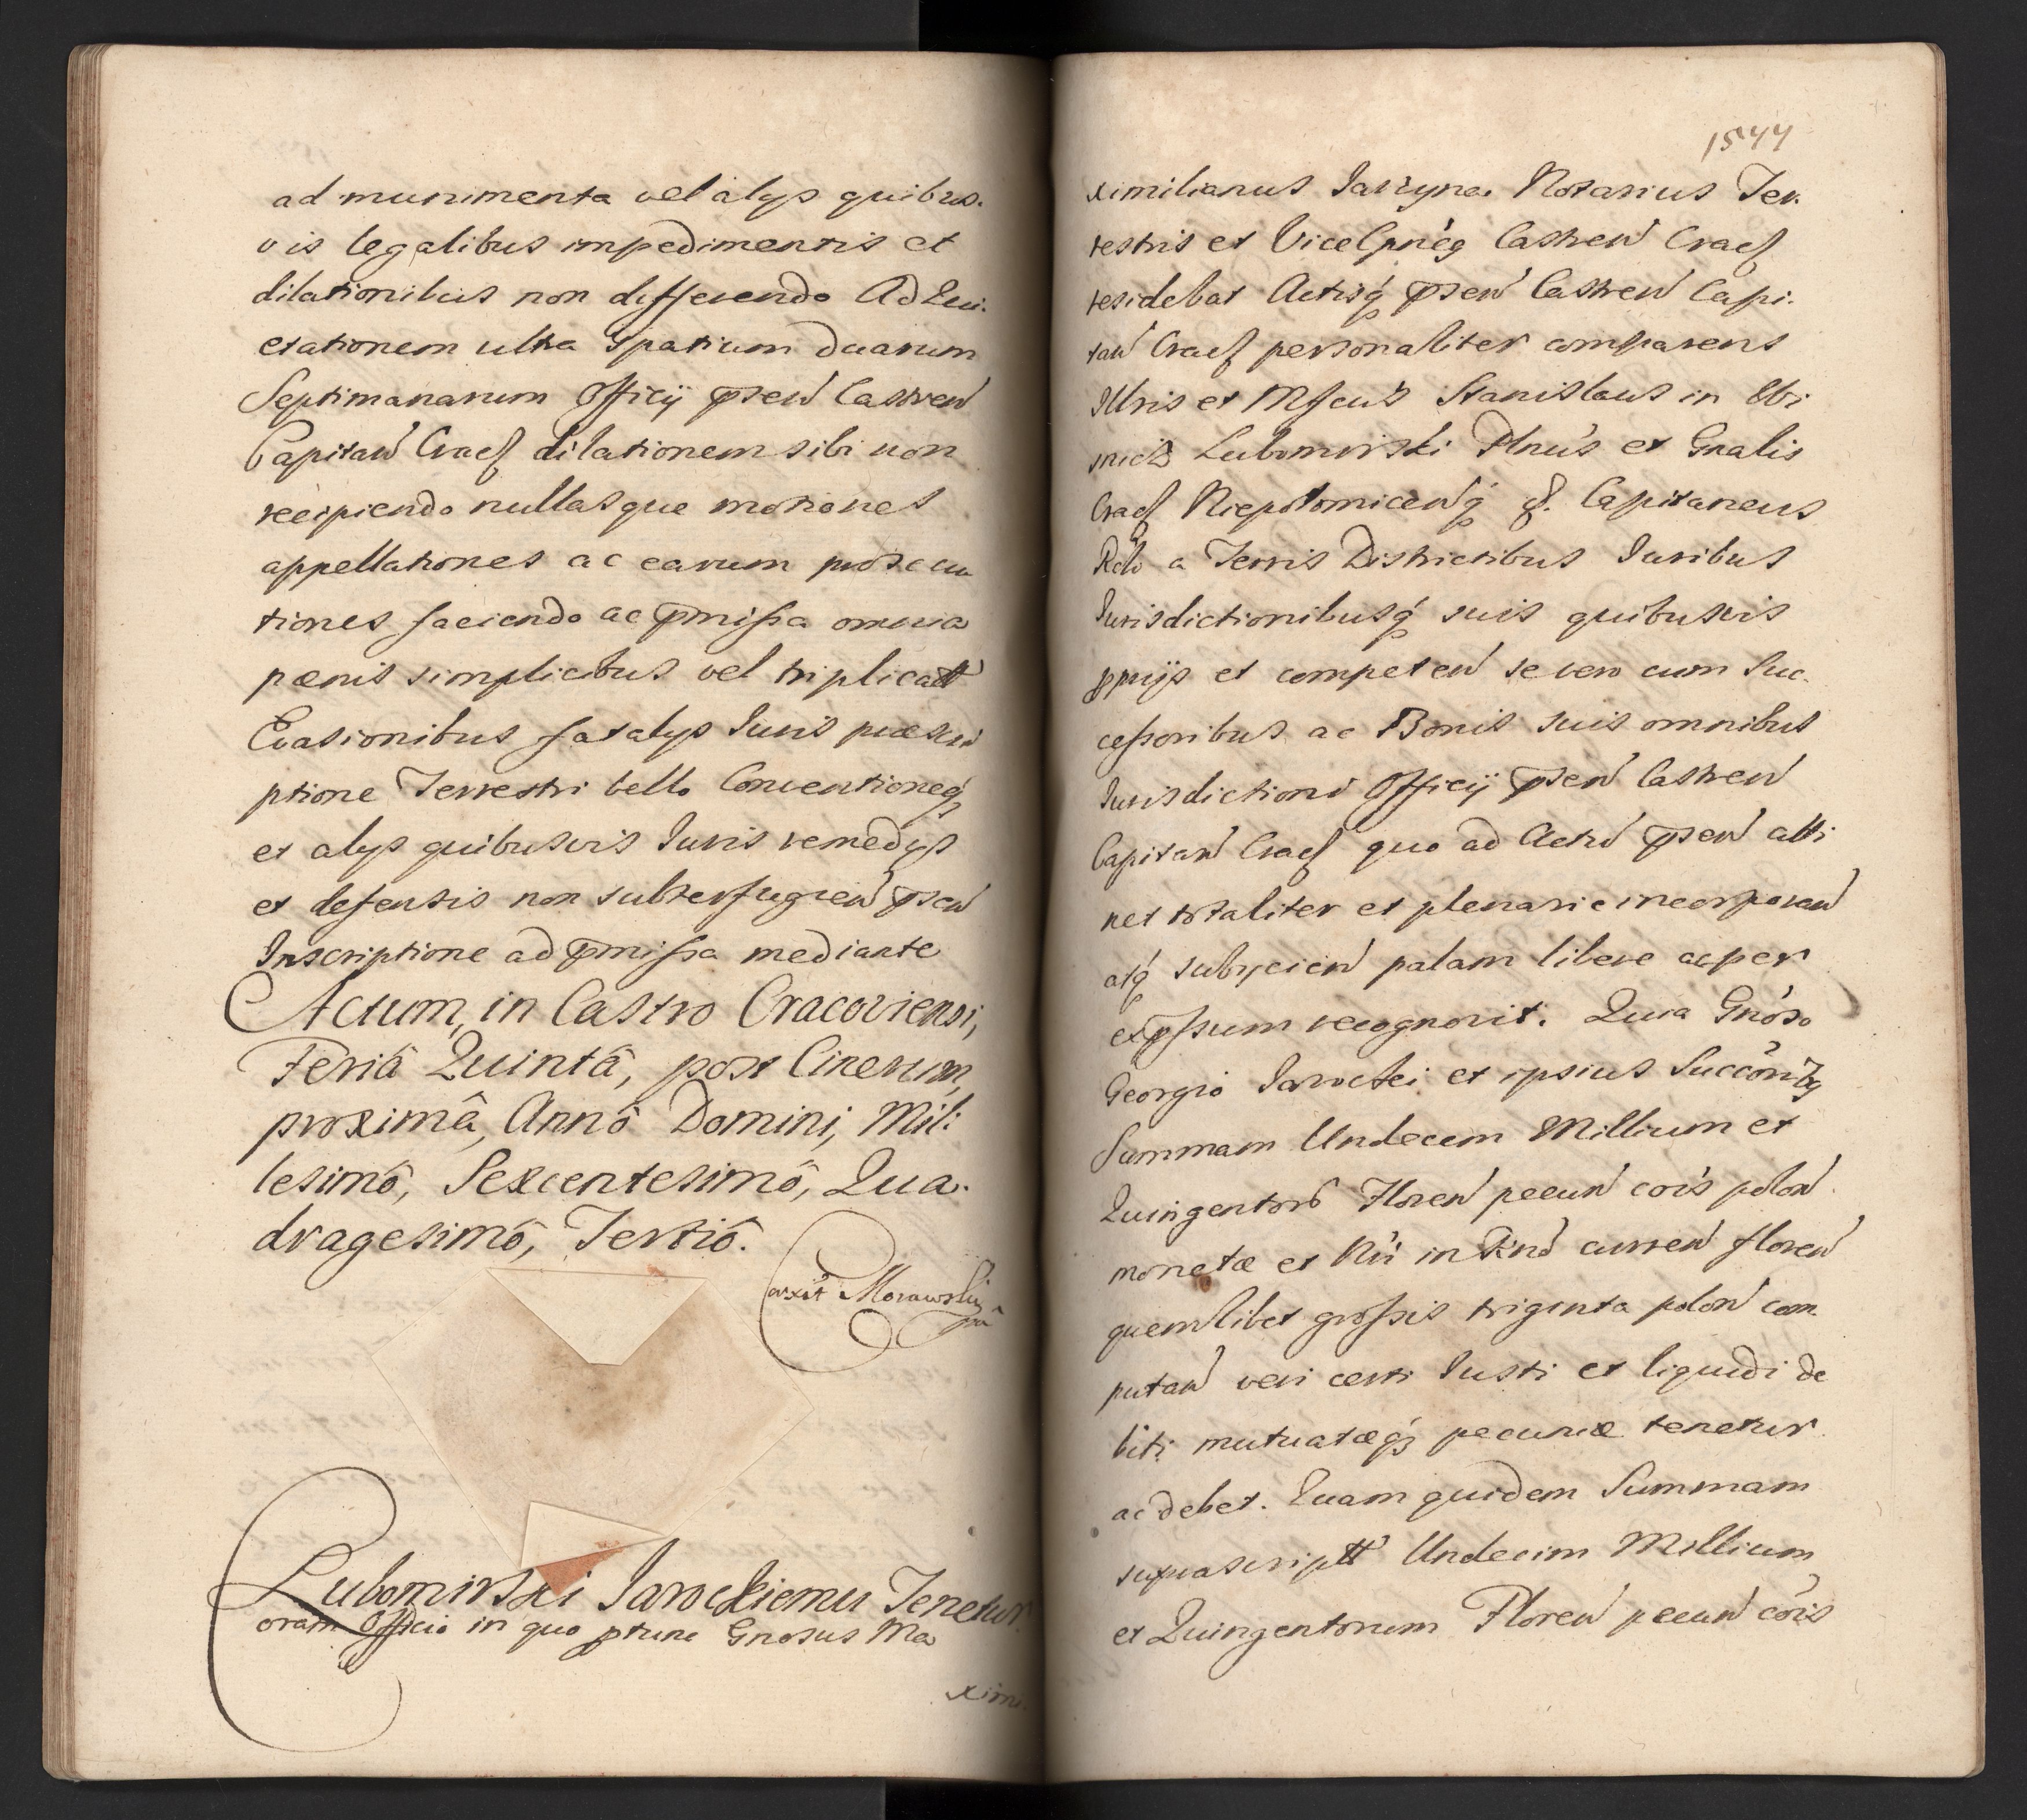 ad munimenta vel alys quibus.
vis legalibus impedimentis et
dilationibus non differendo Ad Qui.
etationem ultra Spatium duarum
Septimanarum Officy pñsen Castren
Capitan Crac dilationem sibi non
recipiendo nullasque motiones
appellationes ac earum prosecu
tiones faciendo ac pmissa omnia
pœnis simplicibus vel triplicatt
Evasionibus fatalys Iuris præscri
ptione Terrestri bello Conventioneq
et alys quibusvis Iuris remedys
et defensis non subterfugien pñsen
Inscriptione ad pmissa mediante
Actum, in Castro Cracoviensi,
Feriâ Quintâ, post Cinerum,
proximâ, Annô Domini, Mil:
lesimô, Sexcentesimô, Qua.
dragesimô, Tertiô.
Morawski
Lubomirski Iarockiemu Tenetur.
oram Officio in quo ptunc Gnosus Ma
ximi
1544
ximilianus Notarius Ter.
restris et Castren Crac
residebat Actisq pñsen Castren Capi.
tan Crac personaliter comparens
Illris et Mfcus Stanislaus in Wi
snicz Lubomirski Plnus et Gnalis
Crac Niepolomicenq &. Capitaneus
Rcto a Terris Districtibus Iuribus
Iurisdictionibusq suis quibusvis
pprijs et competen se vero cum Suc.
cessoribus ac Bonis suis omnibus
Iurisdictioni Officy pñsen Castren
Capitan Crac quo ad Actu pñsen atti
net totaliter et plenarie incorporan
atq subycien palam libere ac per
expssum recognovit. Quia Gnoso
Georgio Iarocki et ipsius Succoribq
Summam Undecem Millium et
Quingentor Floren pecun cois polon
monetæ et Nri in curren floren
quemlibet grossis triginta polon com.
putan veri certi Iusti et liquidi de
biti mutuatæq pecuniæ tenetur
ac debet. Quam quidem Summam
suprascriptt Undecim Millium
et Quingentorum Floren pecun cois